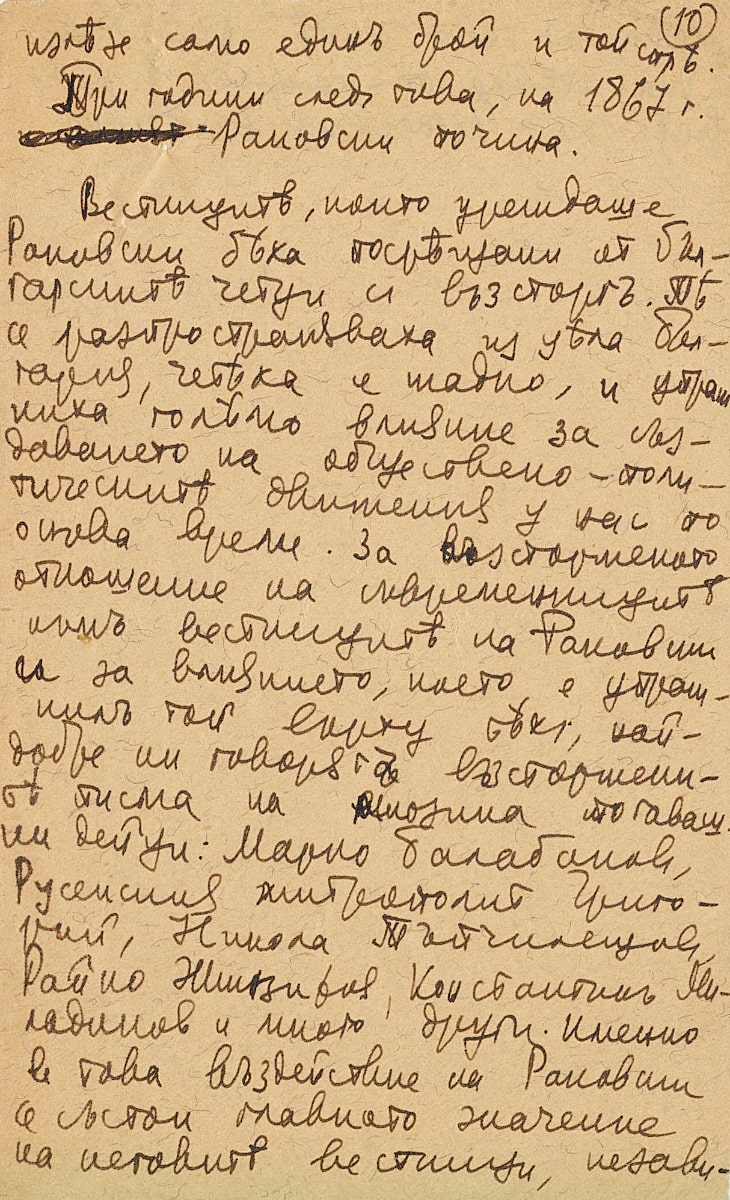 (10)
излѣзе само единъ брой и той спрѣ.
Три години следъ това, на 1867 г.
Раковски почина.
Вестницитѣ, които уреждаше
Раковски бѣха посрѣщани от бъл-
гарскитѣ четци с възторгъ. Тѣ
се разпространяваха из цѣла Бъл-
гария, четѣха с жадно, и упраж
ниха голѣмо влияние за съз-
даването на обществено-поли-
тическитѣ движения у нас по
онова време. За възторженото
отношение на съвременницитѣ
към вестницитѣ на Раковски
и за влиянието, което е упраж-
нилъ той върху тѣхъ, най-
добре ни говорятъ възторжени-
тѣ писма на мнозина тогаваш-
ни дейци: Марко Балабановъ,
Русенския митрополит Григо-
рий, Никола Тъпчилещовъ,
Райко Жинзифовъ, Константинъ Ми-
ладинов и много други. Именно
в това въздействие на Раковски
се състои главното значение
на неговитѣ вестници, незави-